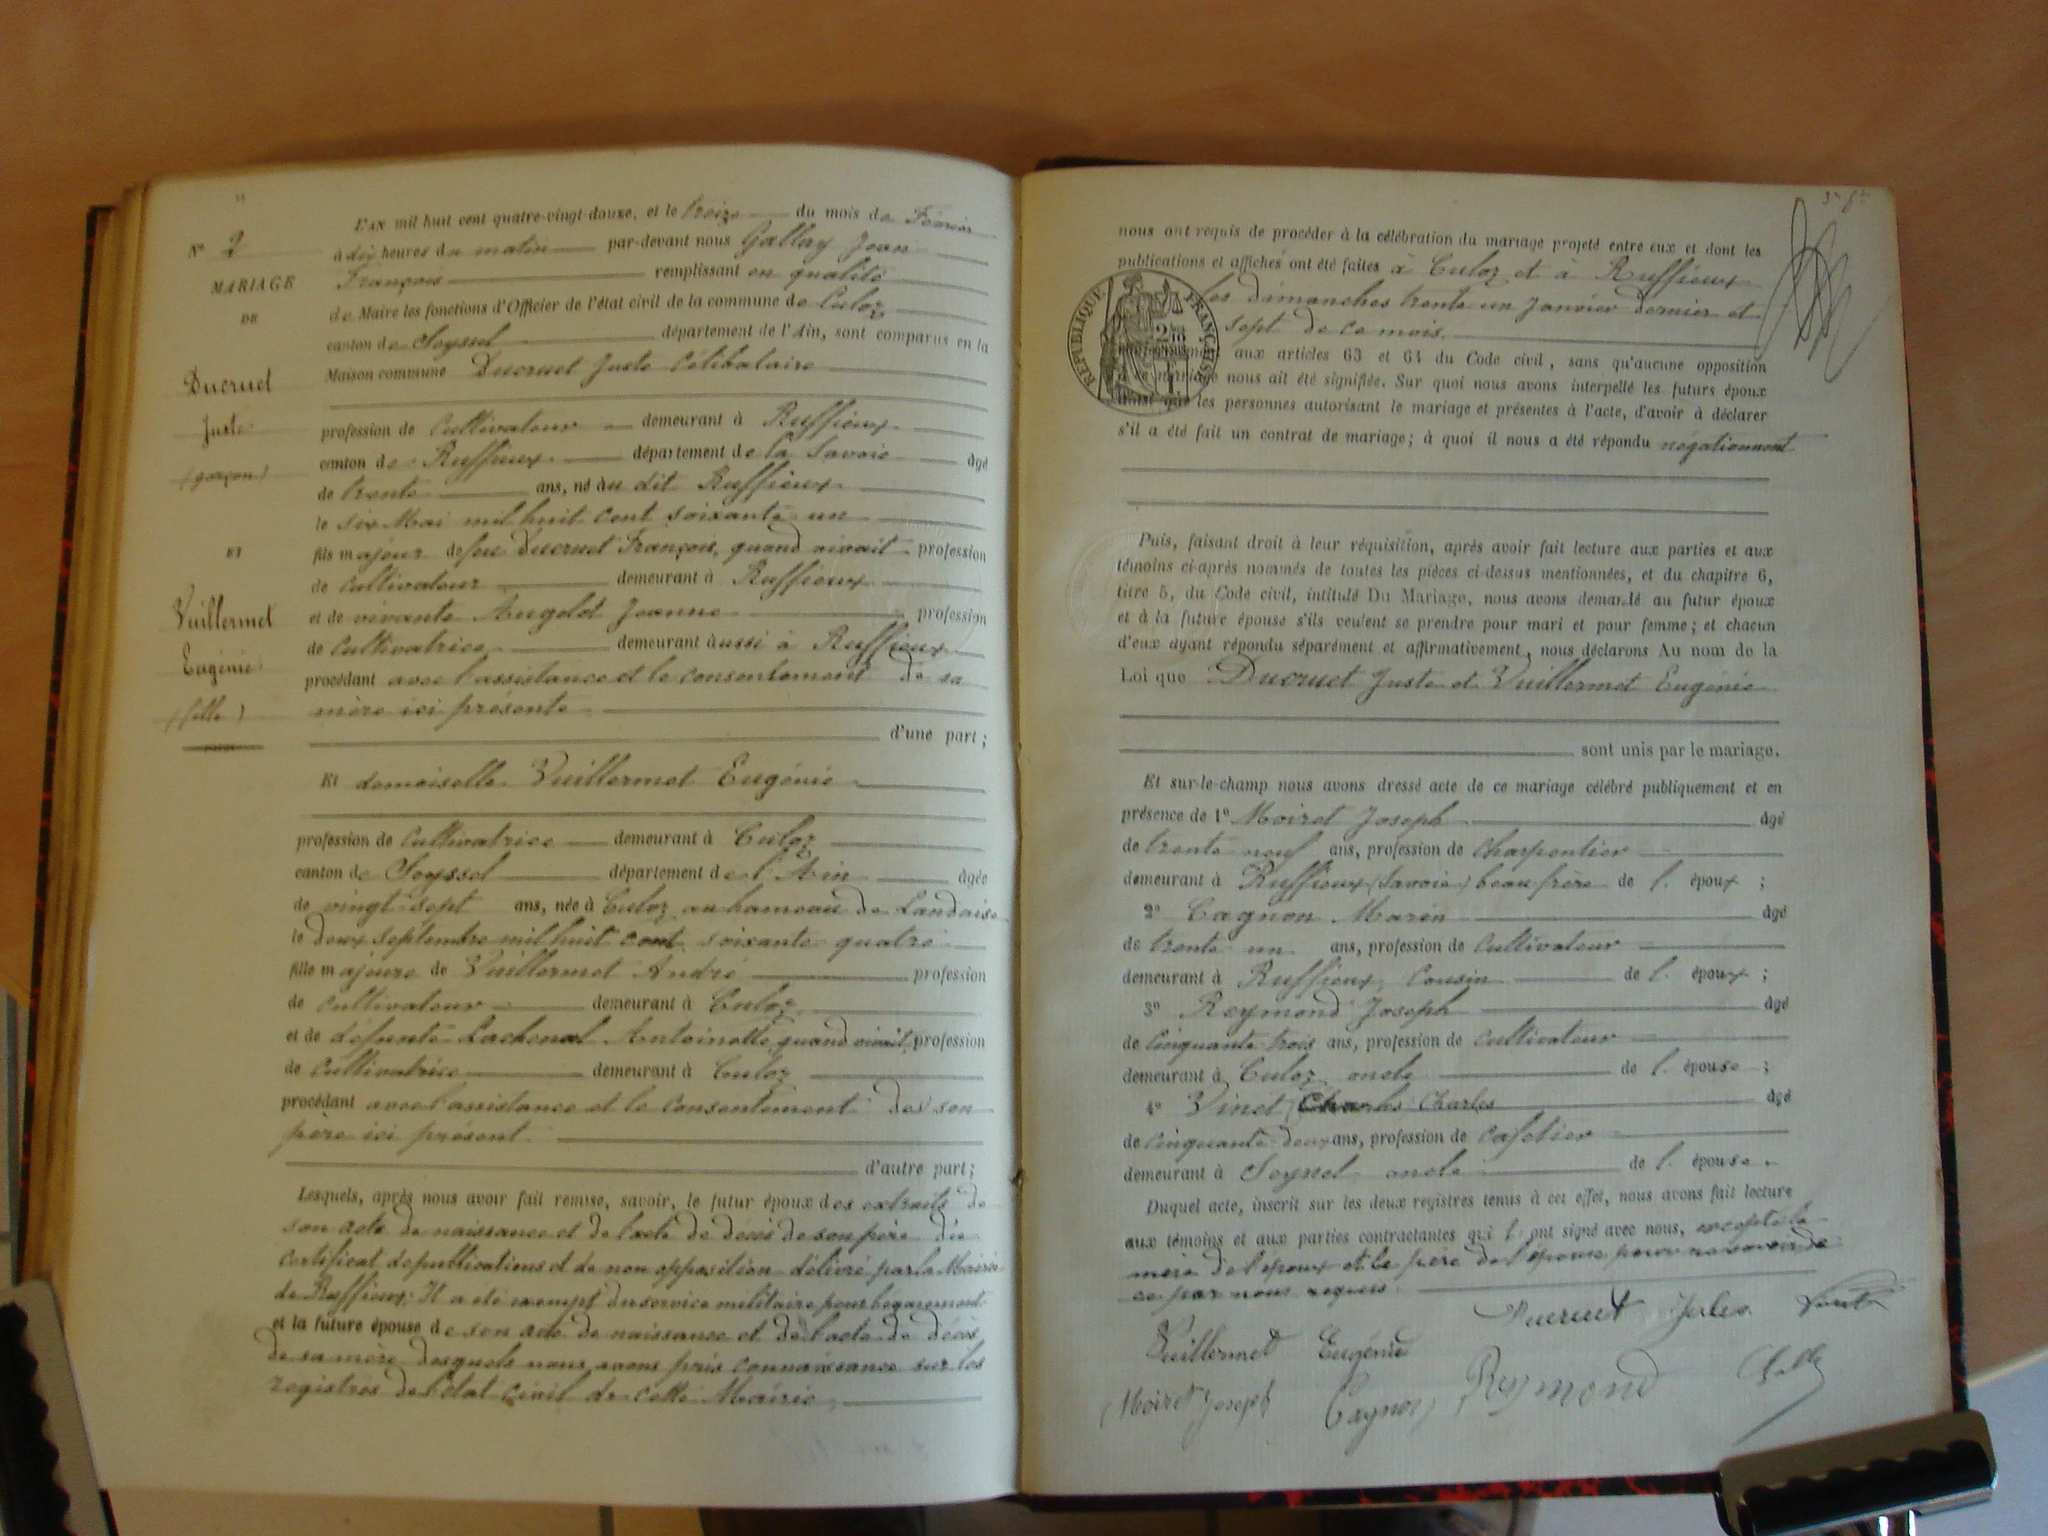 L'AN mil huit cent quatre-vingt-douze, et le treize du mois de Février
N° 2
à dix heures du matin par-devant nous Gallay Jean
MARIAGE
François remplissant en qualité
DE
de Maire les fonctions d'Officier de l'état civil de la commune de Culoz
canton de Seyssel département de l'Ain, sont comparus en la
Ducruet
Maison commune Ducruet Juste Célibataire
Juste
profession de Cultivateur demeurant à Ruffieux
(garçon)
canton de Ruffieux département de la Savoie âgé
de trente ans, né au dit Ruffieux
le six Mai mil huit cent soixante un
ET
fils majeur de feu Ducruet François, quand vivait profession
de Cultivateur demeurant à Ruffieux
Vuillermet
et de vivante Augelet Jeanne profession
Eugénie
de Cultivatrice demeurant aussi à Ruffieux
procédant avec l'assistance et le consentement de sa
(fille)
mère ici présente
d'une part;
Et demoiselle Vuillermet Eugénie
profession de Cultivatrice demeurant à Culoz
canton de Seyssel département de l'Ain âgée
de vingt-sept ans, née à Culoz au hameau de Landaise
le deux septembre mil huit cent soixante quatre
fille majeure de Vuillermet André profession
de Cultivateur demeurant à Culoz
et de défunte Lachenal Antoinette, quand vivait, profession
de Cultivatrice demeurant à Culoz
procédant avec l'assistance et le consentement de son
père ici présent
d'autre part;
Lesquels, après nous avoir fait remise, savoir, le futur époux des extraits de
son acte de naissance et de l'acte de décès de son père du
certificat de publications et de non opposition délivré par la Mairie
de Ruffieux. Il a été exempt du service militaire pour bégaiement
et la future épouse de son acte de naissance et de l'acte de décès
de sa mère desquels nous avons pris connaissance sur les
registres de l'état civil de cette Mairie
nous ont requis de procéder à la célébration du mariage projeté entre eux et dont les
publications et affiches ont été faites à Culoz et à Ruffieux
les dimanches trente un Janvier dernier et
sept de ce mois.
RÉPUBLIQUE FRANÇAISE
aux articles 63 et 64 du Code civil, sans qu'aucune opposition
mariage nous ait été signifiée. Sur quoi nous avons interpellé les futurs époux
ainsi que les personnes autorisant le mariage et présentes à l'acte, d'avoir à déclarer
s'il a été fait un contrat de mariage; à quoi il nous a été répondu négativement
Puis, faisant droit à leur réquisition, après avoir fait lecture aux parties et aux
témoins ci-après nommés de toutes les pièces ci-dessus mentionnées, et du chapitre 6,
titre 5, du Code civil, intitulé Du Mariage, nous avons demandé au futur époux
et à la future épouse s'ils veulent se prendre pour mari et pour femme; et chacun
d'eux ayant répondu séparément et affirmativement, nous déclarons Au nom de la
Loi que Ducruet Juste et Vuillermet Eugénie
sont unis par le mariage.
Et sur-le-champ nous avons dressé acte de ce mariage célébré publiquement et en
présence de 1° Moiret Joseph âgé
de trente neuf ans, profession de Charpentier
demeurant à Ruffieux (Savoie) beau frère de l'époux;
2° Cagnon Marin âgé
de trente un ans, profession de Cultivateur
demeurant à Ruffieux, Cousin de l'époux;
3° Reymond Joseph âgé
de Cinquante trois ans, profession de Cultivateur
demeurant à Culoz oncle de l'épouse;
4° Vinet Charles âgé
de Cinquante deux ans, profession de Cafetier
demeurant à Seyssel oncle de l'épouse.
Duquel acte, inscrit sur les deux registres tenus à cet effet, nous avons fait lecture
aux témoins et aux parties contractantes qui l'ont signé avec nous, excepté la
mère de l'époux et le père de l'épouse pour ne savoir de
ce par nous requis.
Ducruet Jules
Vuillermet Eugénie
Moiret Joseph Cagnon Reymond